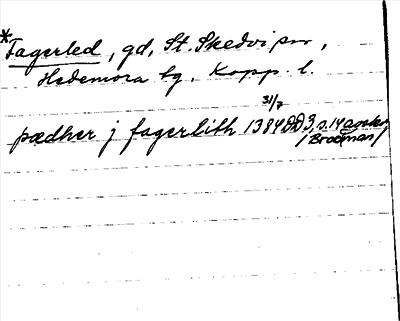 *Fagerled, gd, St. Skedvi sn,
Hedemora tg, Kopp. l.
31/7
pædher j fagerlith 1384 DD 3, s. 14
/Brodman/